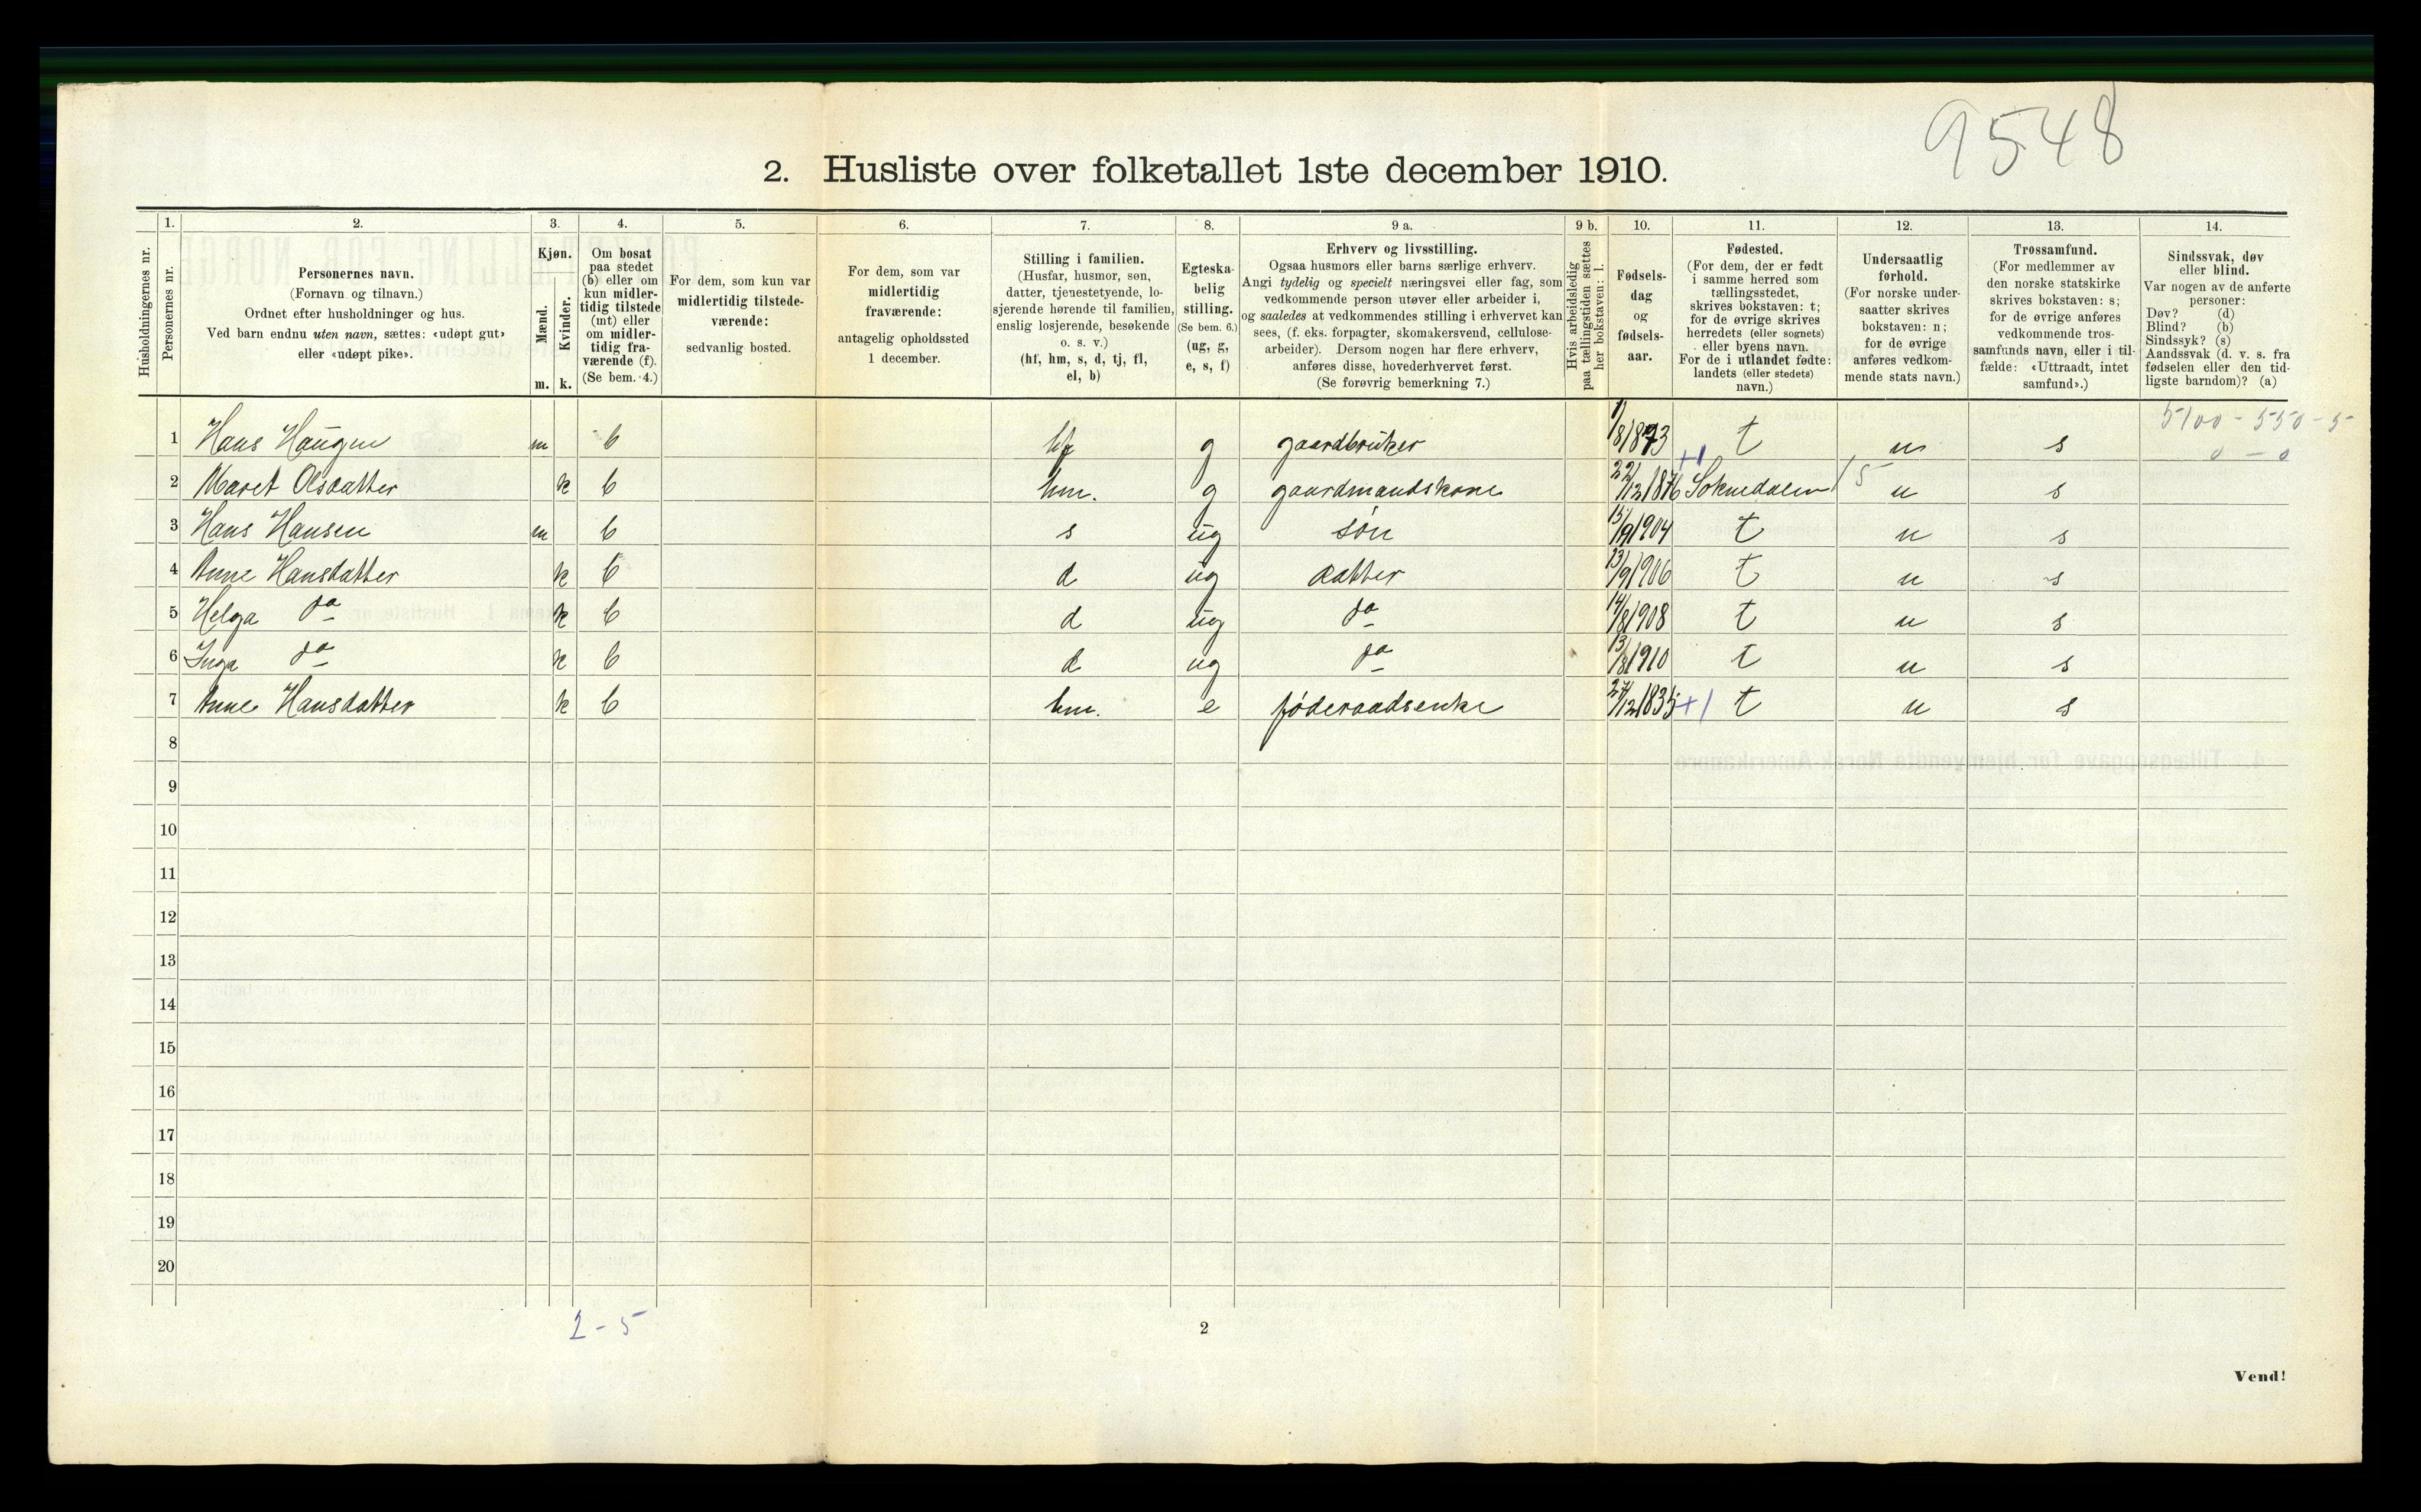 9548
2. Husliste over folketallet 1ste december 1910.
Husholdningernes nr.
1.
Personernes nr.
2.
Personernes navn.
(Fornavn og tilnavn.)
Ordnet efter husholdninger og hus.
Ved barn endnu uten navn, sættes: «udøpt gut»
eller «udøpt pike».
3.
Kjøn.
Mænd.
Kvinder.
m. k.
4.
Om bosat
paa stedet
(b) eller om
kun midler-
tidig tilstede
(mt) eller
om midler-
tidig fra-
værende (f).
(Se bem. 4.)
5.
For dem, som kun var
midlertidig tilstede-
værende:
sedvanlig bosted.
6.
For dem, som var
midlertidig
fraværende:
antagelig opholdssted
1 december.
7.
Stilling i familien.
(Husfar, husmor, søn,
datter, tjenestetyende, lo-
sjerende hørende til familien,
enslig losjerende, besøkende
o. s. v.)
(hf, hm, s, d, tj, fl,
el, b)
8.
Egteska-
belig
stilling.
(Se bem. 6.)
(ug, g,
e, s, f)
9 a.
Erhverv og livsstilling.
Ogsaa husmors eller barns særlige erhverv.
Angi tydelig og specielt næringsvei eller fag, som
vedkommende person utøver eller arbeider i,
og saaledes at vedkommendes stilling i erhvervet kan
sees, (f. eks. forpagter, skomakersvend, cellulose-
arbeider). Dersom nogen har flere erhverv,
anføres disse, hovederhvervet først.
(Se forøvrig bemerkning 7.)
9 b.
Hvis arbeidsledig
paa tællingstiden sættes
her bokstaven: l.
10.
Fødsels-
dag
og
fødsels-
aar.
11.
Fødested.
(For dem, der er født
i samme herred som
tællingsstedet,
skrives bokstaven: t;
for de øvrige skrives
herredets (eller sognets)
eller byens navn.
For de i utlandet fødte:
landets (eller stedets)
navn.)
12.
Undersaatlig
forhold.
(For norske under-
saatter skrives
bokstaven: n;
for de øvrige
anføres vedkom-
mende stats navn.)
13.
Trossamfund.
(For medlemmer av
den norske statskirke
skrives bokstaven: s;
for de øvrige anføres
vedkommende tros-
samfunds navn, eller i til-
fælde: «Uttraadt, intet
samfund».)
14.
Sindssvak, døv
eller blind.
Var nogen av de anførte
personer:
Døv? (d)
Blind? (b)
Sindssyk? (s)
Aandssvak (d. v. s. fra
fødselen eller den tid-
ligste barndom)? (a)
5100 - 550 - 5
0 - 0
1 Hans Haugen m b hf g gaardbruker 1/8 1873 t n s
2 Maret Olsdatter k b hm. g gaardmandskone 22/12 1876 +1 Soknedalen 15 n s
3 Hans Hansen m b s ug søn 15/9 1904 t n s
4 Anne Hansdatter k b d ug datter 23/9 1906 t n s
5 Helga do k b d ug do 14/8 1908 t n s
6 Inga do k b d ug do 13/8 1910 t n s
7 Anne Hansdatter k b hm. e føderaadsenke 27/12 1835 +1 t n s
8
9
10
11
12
13
14
15
16
17
18
19
20
2-5
2
Vend!